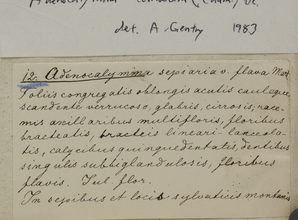 Adenocalymma comosum (Cham.) DC.
det. A Gentry 1983
12. Adenocalymma sepiaria v. flava Mart
Foliis congregatis oblongis acutis cauleque
scandente verrucoso, glabris, cirrosis, race-
mis axillaribus multifloris, floribus
bracteatis, bracteis lineari-lanceola-
tis, calycibus quinquedentatis, dentibus
singulis subbiglandulosis, floribus
flavis. Jul flor.
In sepibus et locis sylvaticis montanis